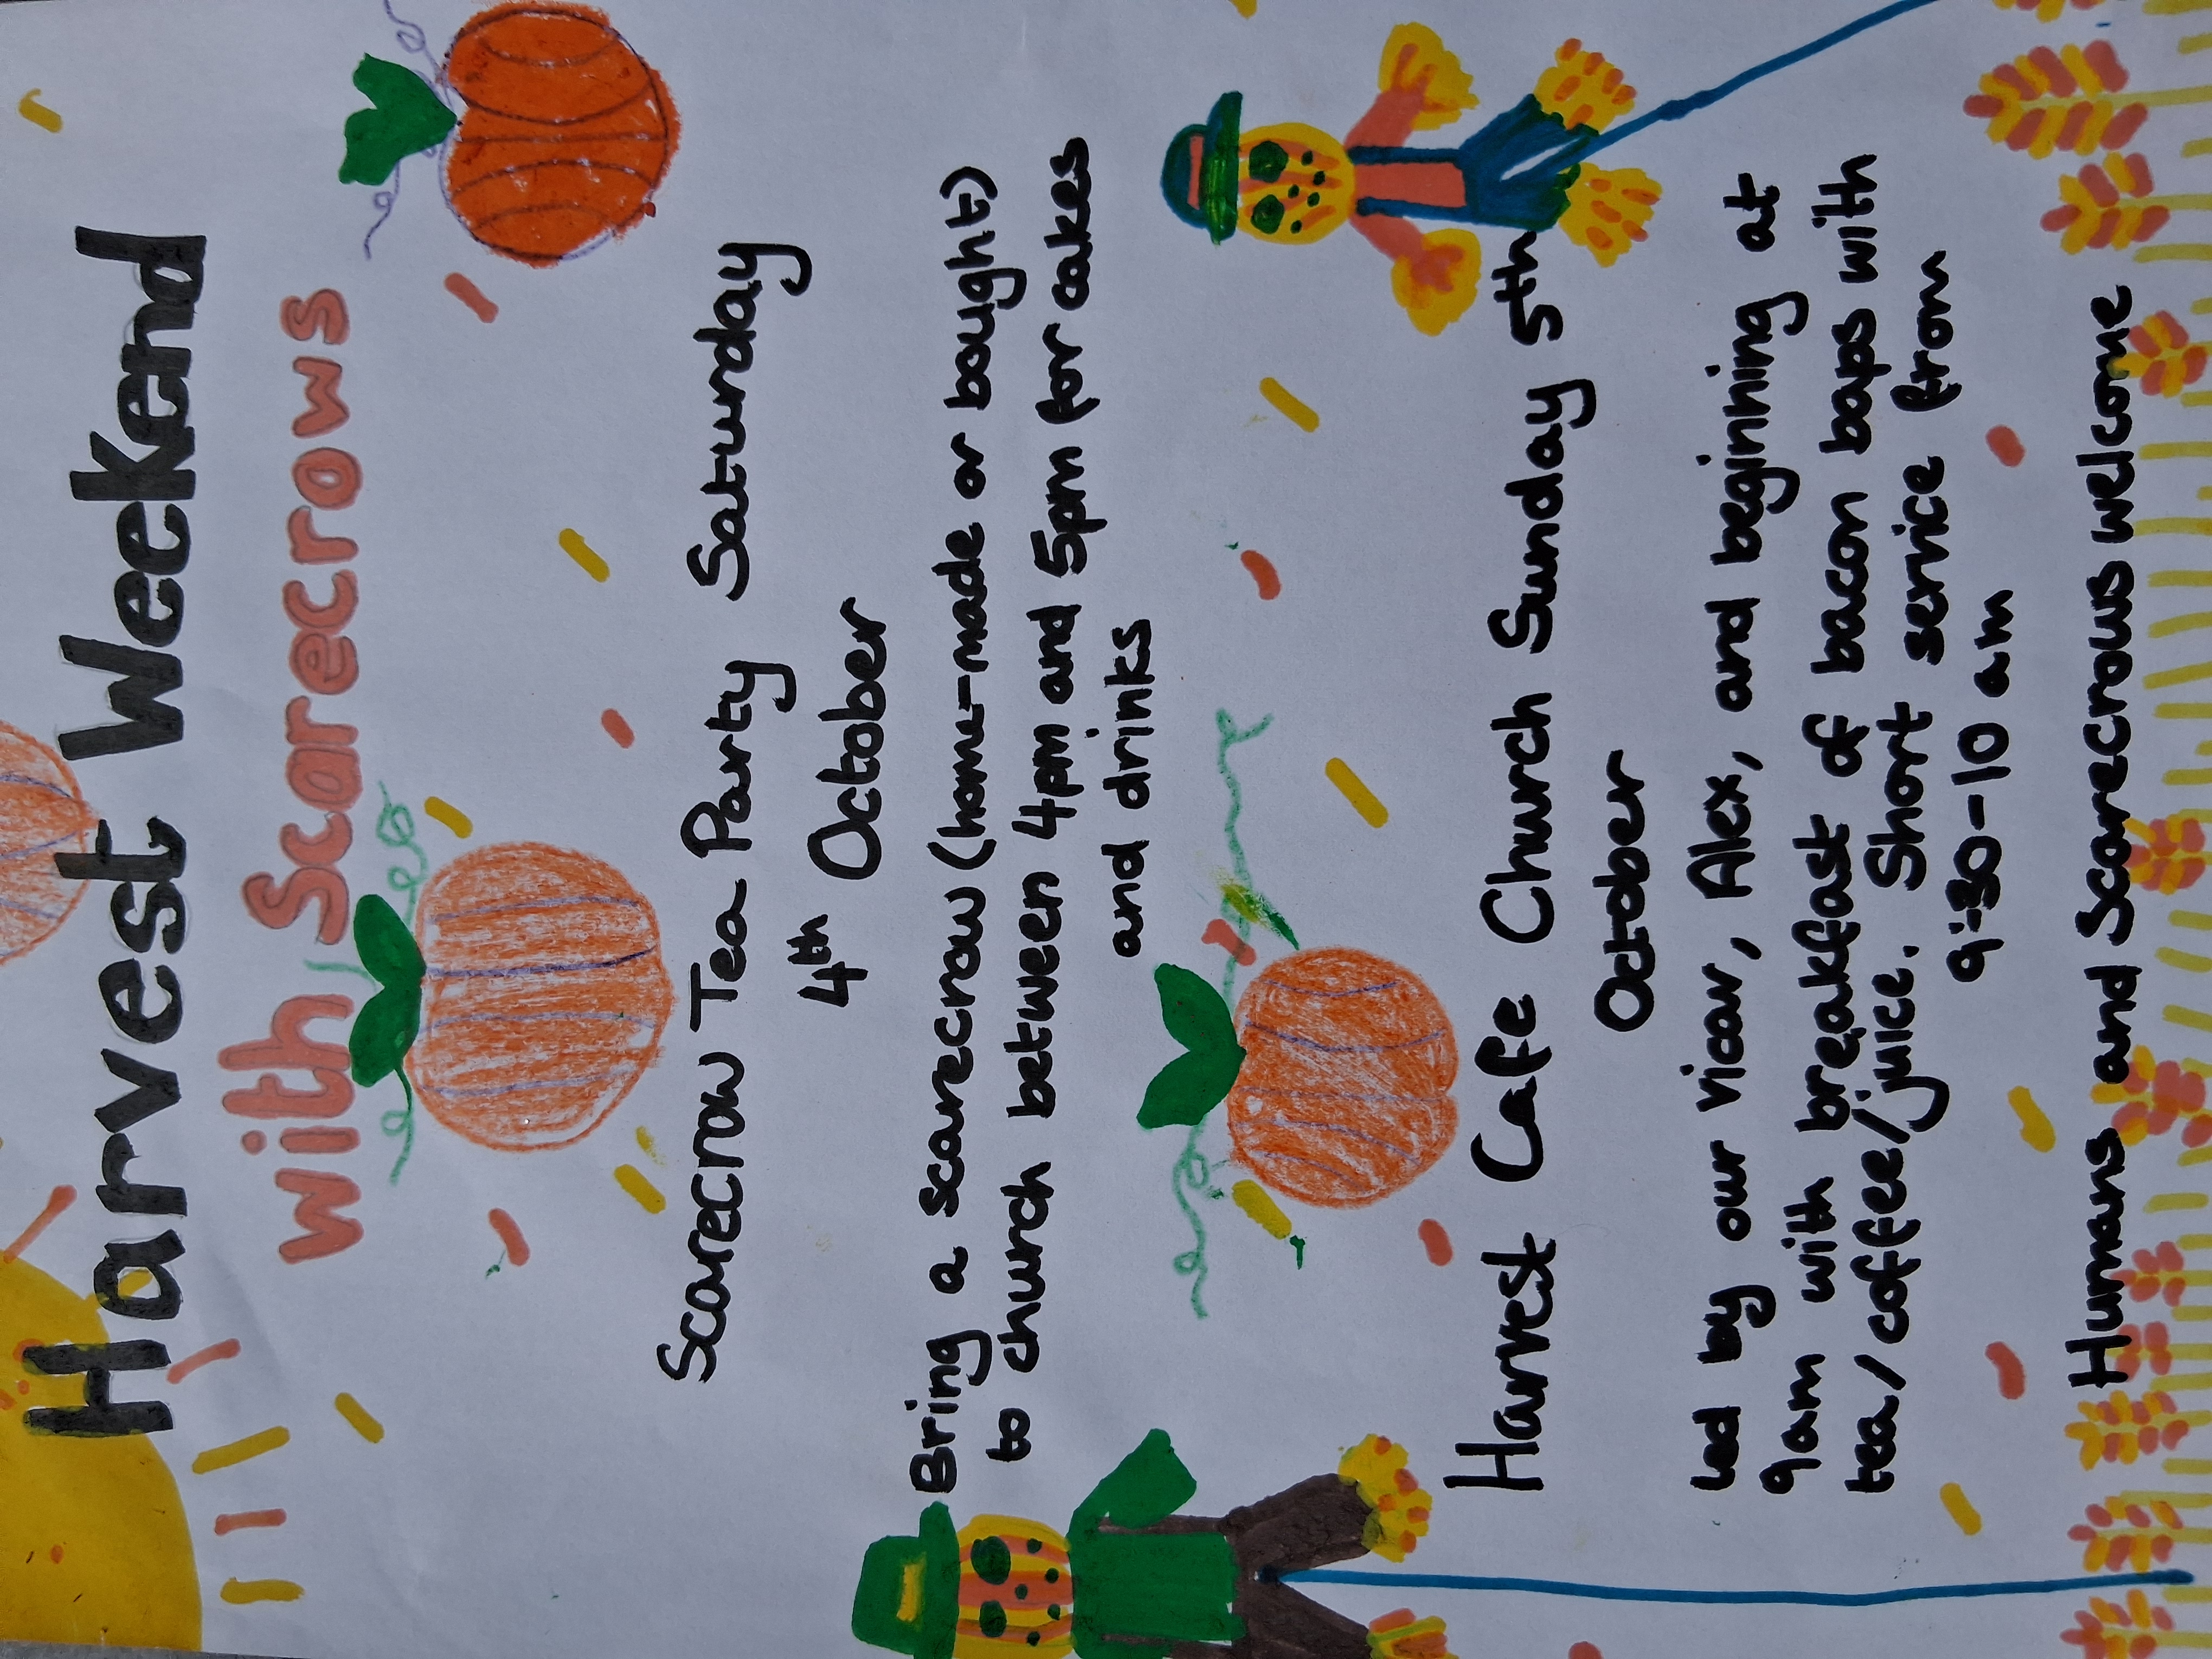 Harvest Weekend
with Scarecrows
Scarecrow Tea Party Saturday
4th October
Bring a scarecrow (home-made or bought)
to church between 4pm and 5pm for cakes
and drinks
Harvest Cafe Church Sunday 5th
October
Led by our vicar, Alex, and beginning at
9am with breakfast of bacon baps with
tea/coffee/juice. Short service from
9:30-10 am
Humans and Scarecrows welcome